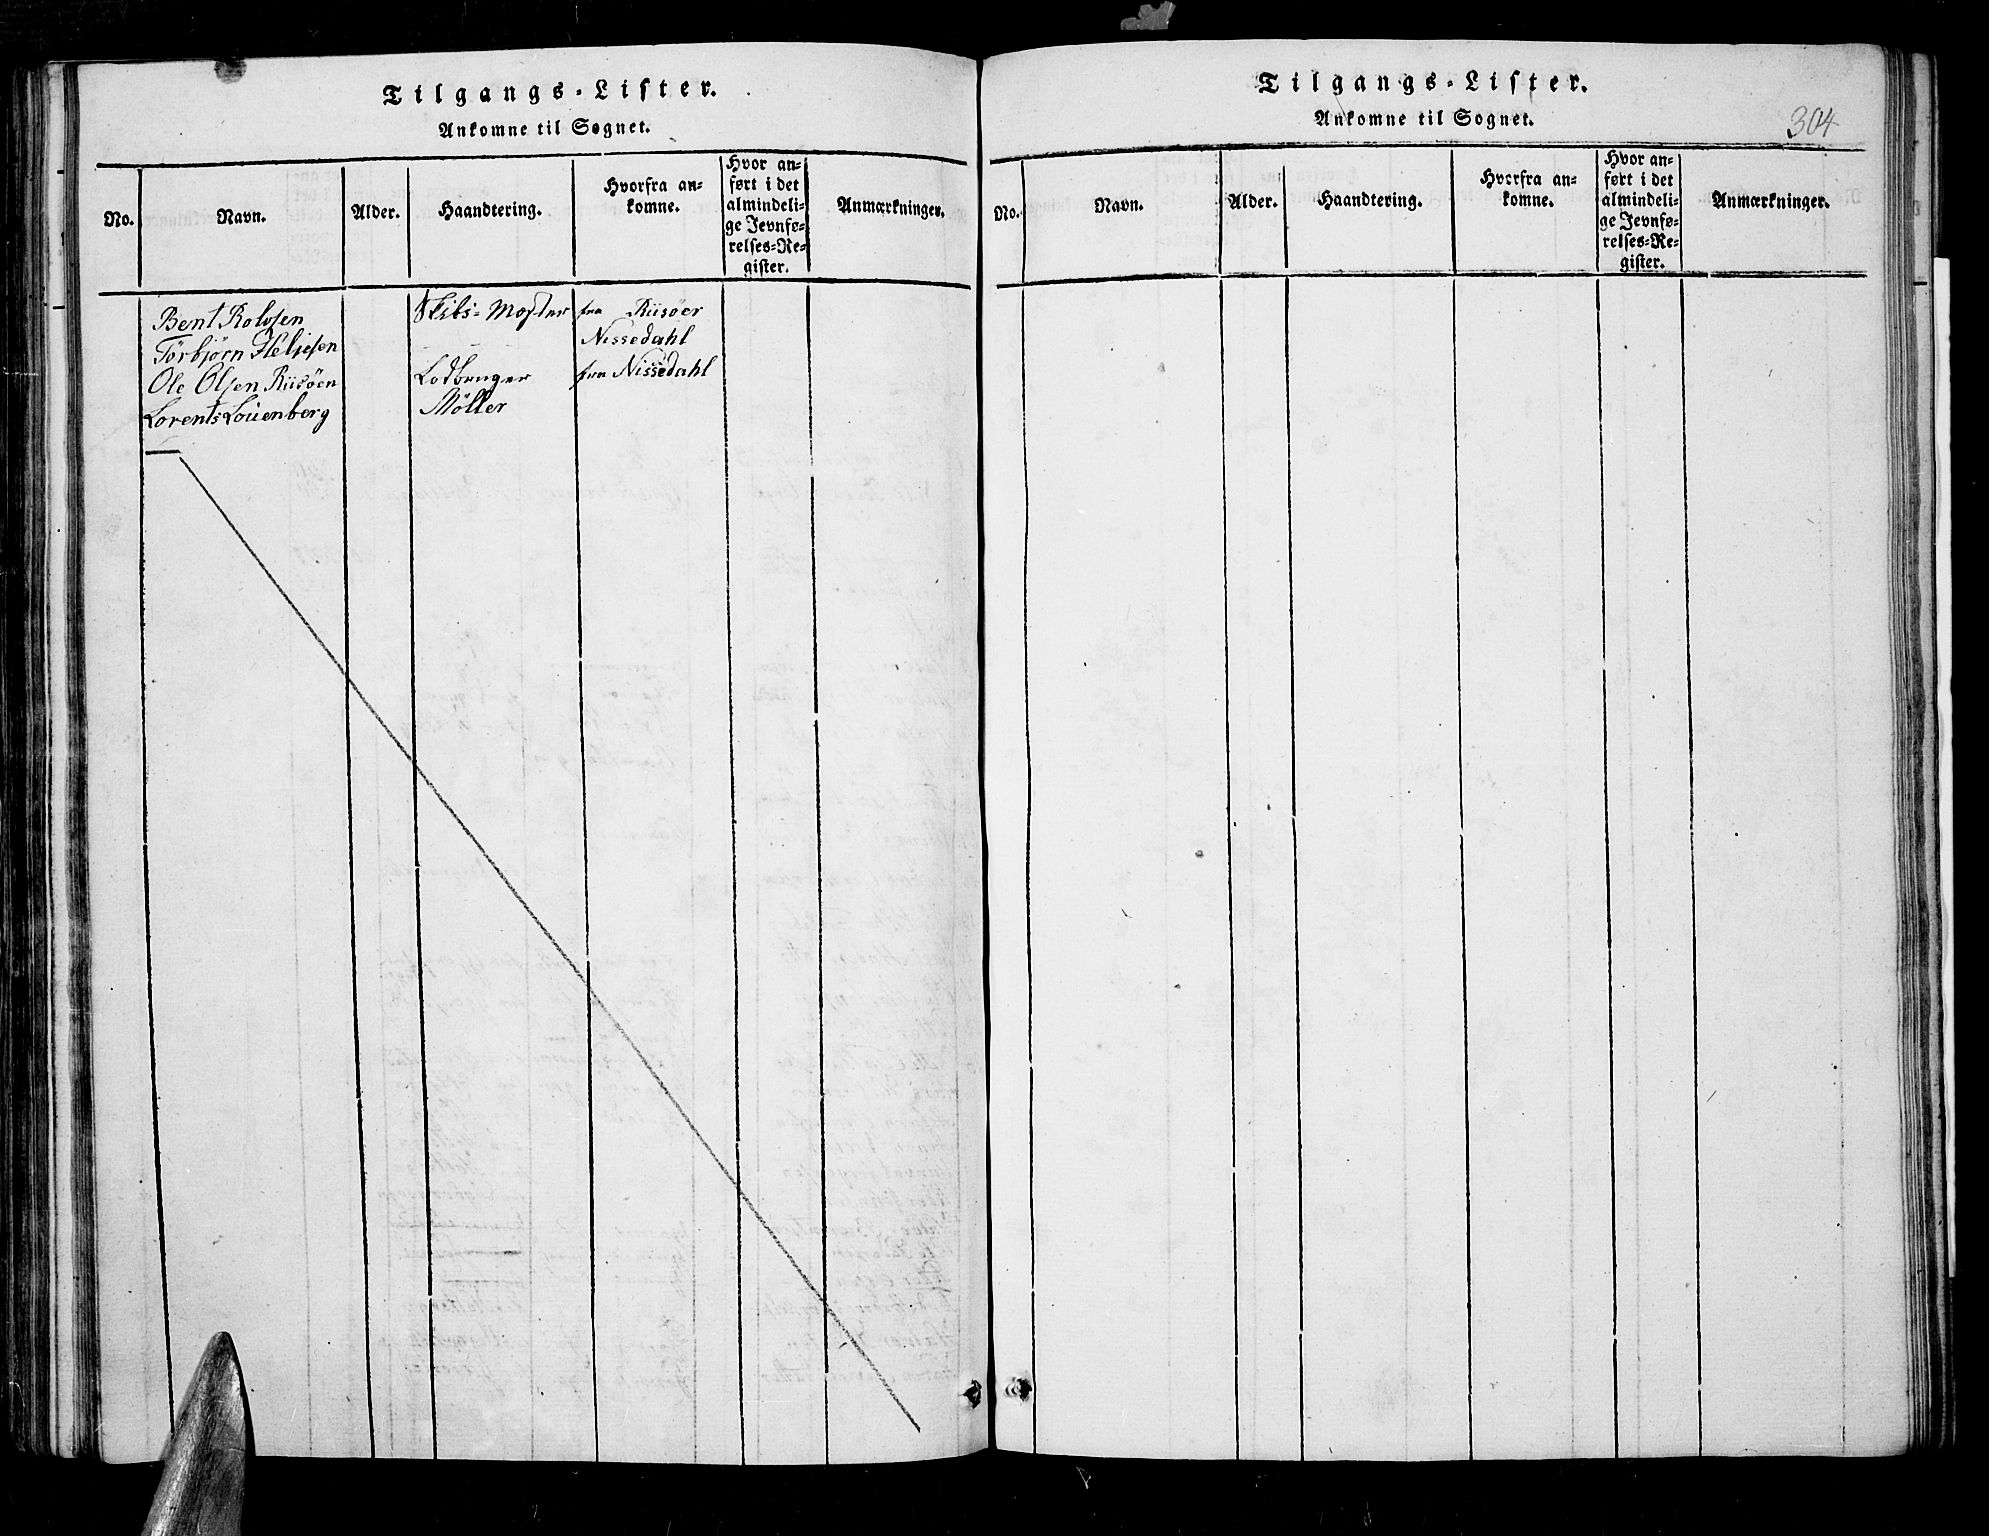 Tilgangs-Lister.
Ankomne til Sognet.
No. Navn. Alder. Haandtering. Hvorfra an-
komne. Hvor an-
ført i det
almindeli-
ge Jevnfø-
relses-Re-
gister. Anmærkninger.
Bent Rolvsen Skibs-Mester fra Riisöer
Törbjörn Heljesen Nissedahl
Ole Olsen Riisöen Lodbruger fra Nissedahl
Lorents Louenberg Möller
Tilgangs-Lister.
Ankomne til Sognet.
304
No. Navn. Alder. Haandtering. Hvorfra an-
komne. Hvor an-
ført i det
almindeli-
ge Jevnfø-
relses-Re-
gister. Anmærkninger.